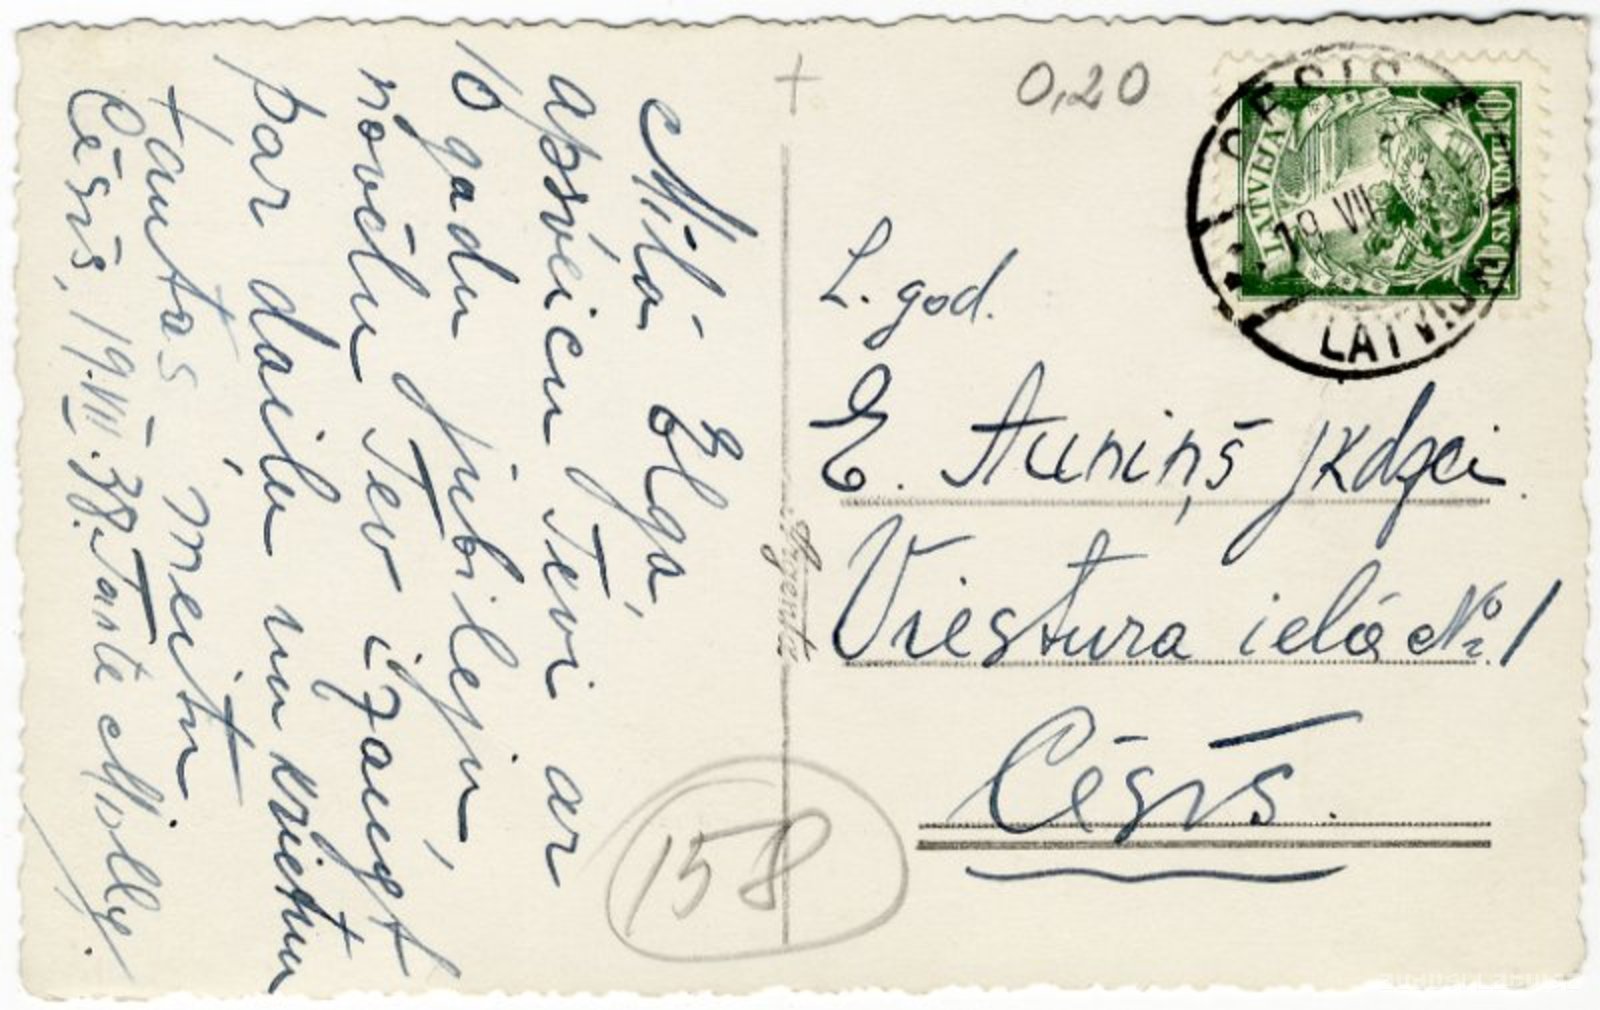 Mīļā Elga,
apsveicu Tevi ar
10 gadu jubileju,
novēlu Tev izaugt
par daiļu un krietnu
tautas meitu
Cēsīs, 19.VII.38. Tante Molly.
+
0,20
CĒSIS
19 VII
LATVIJA
LATVIJA
10 SANTIMU 10
L. god.
E. Auniņš jkdzei
Viestura ielā № 1
Cēsīs.
158